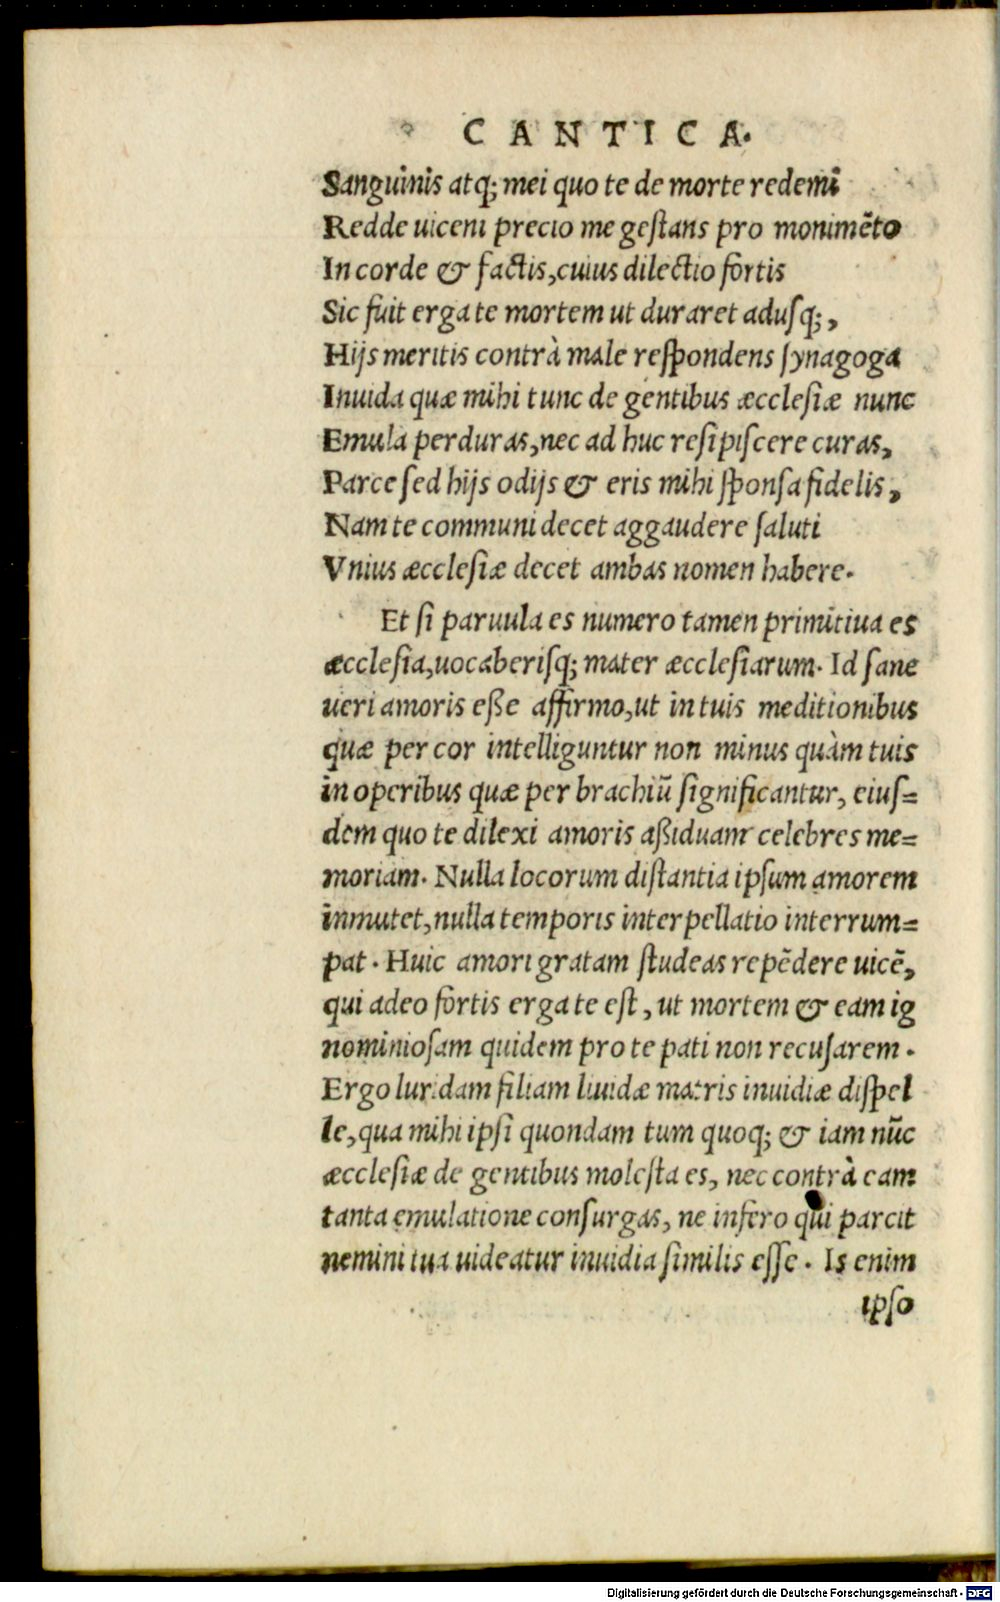 CANTICA.
Sanguinis atq; mei quo te de morte redemi
Redde uiceni precio me gestans pro monimẽto
In corde & factis, cuius dilectio fortis
Sic fuit erga te mortem ut duraret adusq;,
Hijs meritis contrà male respondens synagoga
Inuida quæ mihi tunc de gentibus æcclesiæ nunc
Emula perduras, nec ad huc resipiscere curas,
Parce sed hijs odijs & eris mihi sponsa fidelis,
Nam te communi decet aggaudere saluti
Vnius æcclesiæ decet ambas nomen habere.
Et si paruula es numero tamen primitiua es
æcclesia, uocaberisq; mater æcclesiarum. Id sane
ueri amoris eße affirmo, ut in tuis meditionibus
quæ per cor intelliguntur non minus quàm tuis
in operibus quæ per brachiũ significantur, eius=
dem quo te dilexi amoris aßiduam celebres me=
moriam. Nulla locorum distantia ipsum amorem
inmutet, nulla temporis interpellatio interrum=
pat. Huic amori gratam studeas repẽdere uicẽ,
qui adeo fortis erga te est, ut mortem & eam ig
nominiosam quidem pro te pati non recusarem.
Ergo luridam filiam liuidæ matris inuidiæ dispel
le, qua mihi ipsi quondam tum quoq; & iam nũc
æcclesiæ de gentibus molesta es, nec contrà eam
tanta emulatione consurgas, ne infero qui parcit
nemini tua uideatur inuidia similis esse. Is enim
ipso
Digitalisierung gefördert durch die Deutsche Forschungsgemeinschaft - DFG